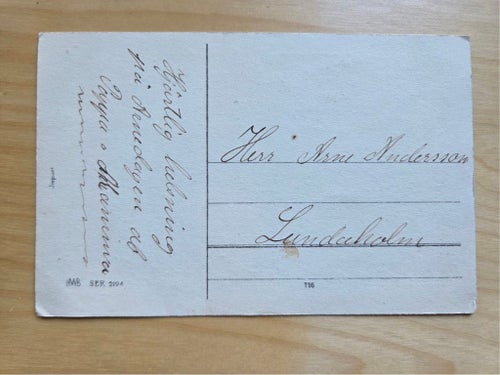 Hjärtlig helsning
på Arnedagen af
Pappa o Mamma
Herr Arne Andersson
Lundaholm
SER. 2104
716